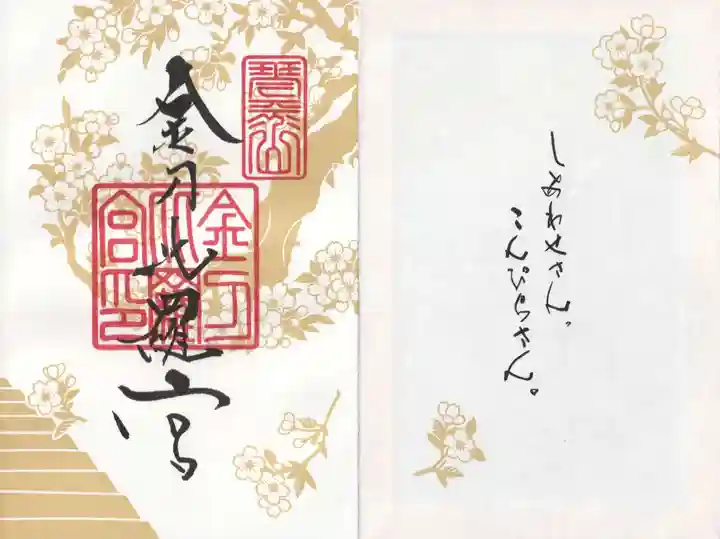 琴平山
金刀比羅宮
金刀
比羅
宮印
しあわせさん。
こんぴらさん。